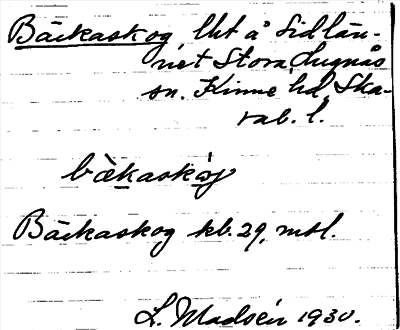 Bäckaskog lht å Sidlän-
net Stora, Lugnås
sn. Kinne hd, Ska-
rab. l.
bäkaskog
Bäckaskog kb. 29, mtl.
L. Madsén 1930.